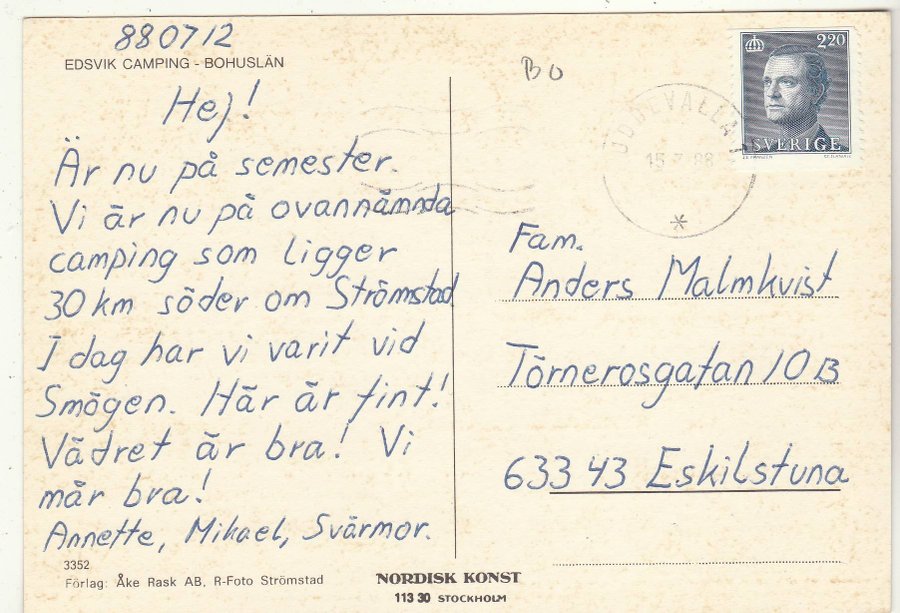 880712
EDSVIK CAMPING - BOHUSLÄN
Hej!
Är nu på semester.
Vi är nu på ovannämnda
camping som ligger
30 km söder om Strömstad
I dag har vi varit vid
Smögen. Här är fint!
Vädret är bra! Vi
mår bra!
Annette, Mikael, Svärmor.
3352
Förlag: Åke Rask AB, R-Foto Strömstad
NORDISK KONST
113 30 STOCKHOLM
BO
UDDEVALLA
220
SVERIGE
Fam.
Anders Malmkvist
Törnerosgatan 10 B
633 43 Eskilstuna